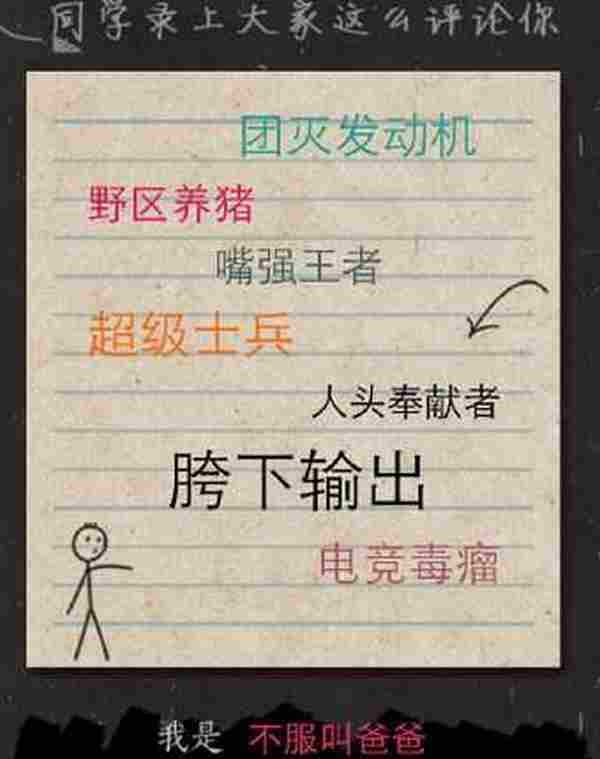 同学录上大家这么评论你
团灭发动机
野区养猪
嘴强王者
超级士兵
人头奉献者
胯下输出
电竞毒瘤
我是 不服叫爸爸